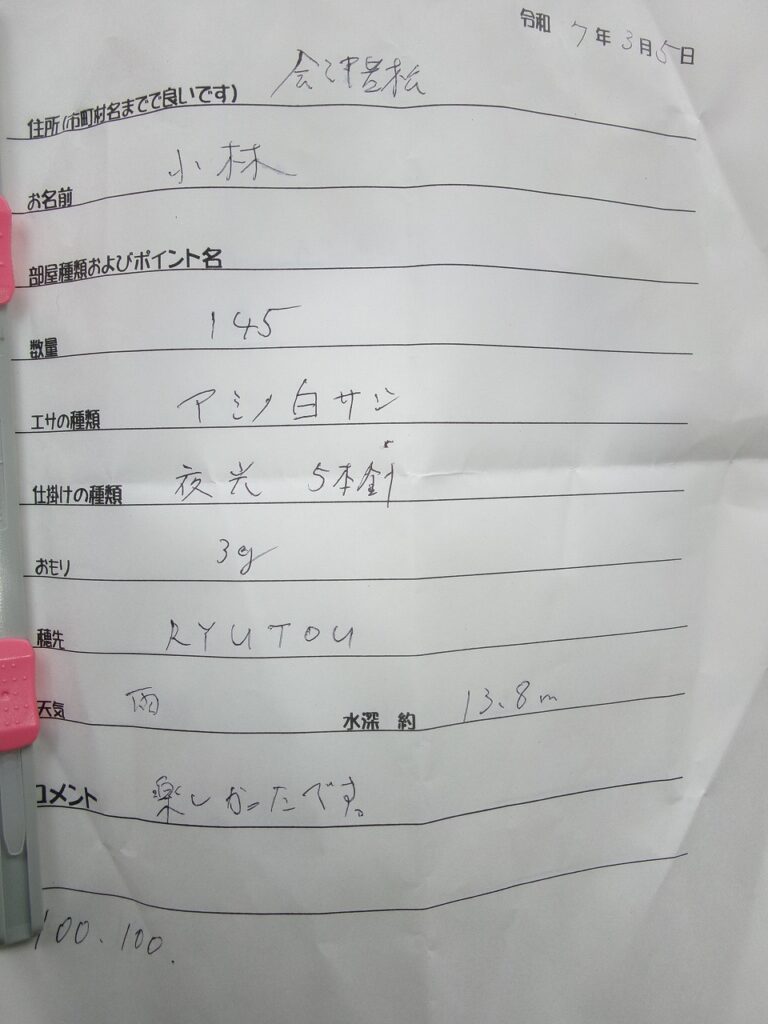 令和 7年3月5日
住所(市町村名までで良いです) 会津若松
お名前 小林
部屋種類およびポイント名
数量 145
エサの種類 アミノ白サシ
仕掛けの種類 夜光 5本針
おもり 3g
穂先 RYUTOU
天気 雨 水深 約 13.8m
コメント 楽しかったです。
100.100.